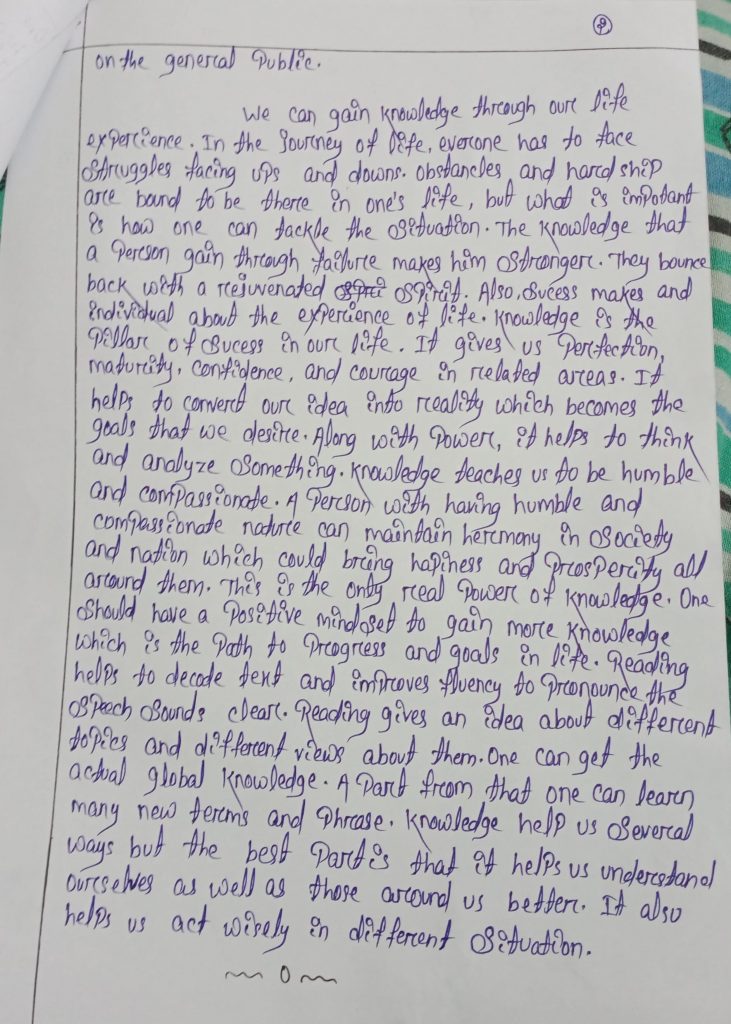 2
on the general Public.
We can gain knowledge through our life
experience. In the Journey of life, everone has to face
Struggles facing ups and downs. obstancles and hardship
are bound to be there in one's life, but what is impotant
is how one can tackle the situation. The knowledge that
a Person gain through failure makes him stronger. They bounce
back with a rejuvenated spirit. Also, sucess makes and
individual about the experience of life. Knowledge is the
Pillar of sucess in our life. It gives us Perfection,
maturity, confidence, and courage in related areas. It
helps to convert our idea into reality which becomes the
goals that we desire. Along with Power, it helps to think
and analyze something. Knowledge teaches us to be humble
and compassionate. A Person with having humble and
compassionate nature can maintain hermony in society
and nation which could bring hapiness and Prosperity all
around them. This is the only real Power of knowledge. One
should have a Positive mindset to gain more knowledge
which is the Path to Progress and goals in life. Reading
helps to decode text and improves fluency to Pronounce the
speech sounds clear. Reading gives an idea about different
topics and different views about them. One can get the
actual global knowledge. A Part from that one can learn
many new terms and Phrase. Knowledge help us several
ways but the best Part is that it helps us understand
ourselves as well as those around us better. It also
helps us act wisely in different situation.